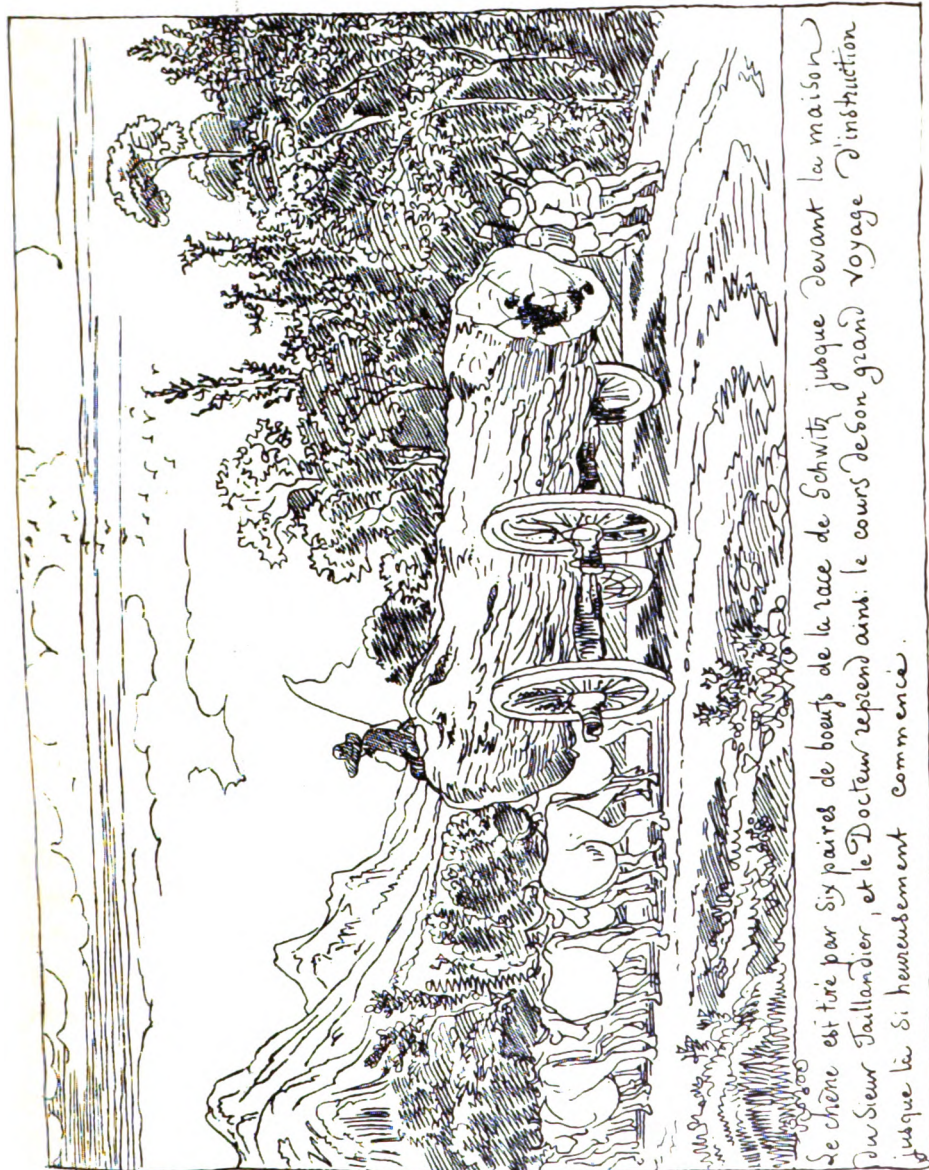 Le chêne est tiré par six paires de boeufs de la race de Schwitz jusque devant la maison
du Sieur Taillandier, et le Docteur reprend ainsi le cours de son grand voyage d'instruction
jusque là si heureusement commencé.